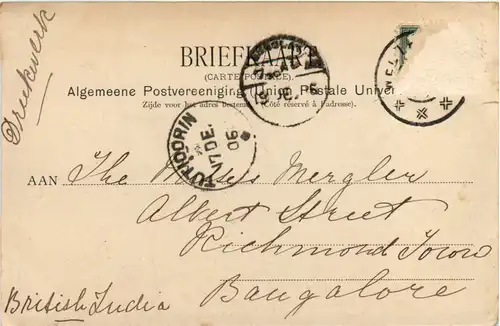 Drukwerk
BRIEFKAART
(CARTE POSTALE).
Algemeene Postvereeniging Union Postale Univer
Zijde voor het adres bestemd. Côté réservé à l'adresse).
TUTICORIN
17 DE.
06
WEL
AAN The Misses Mergler
Albert Street
Richmond Town
Bangalore
British India